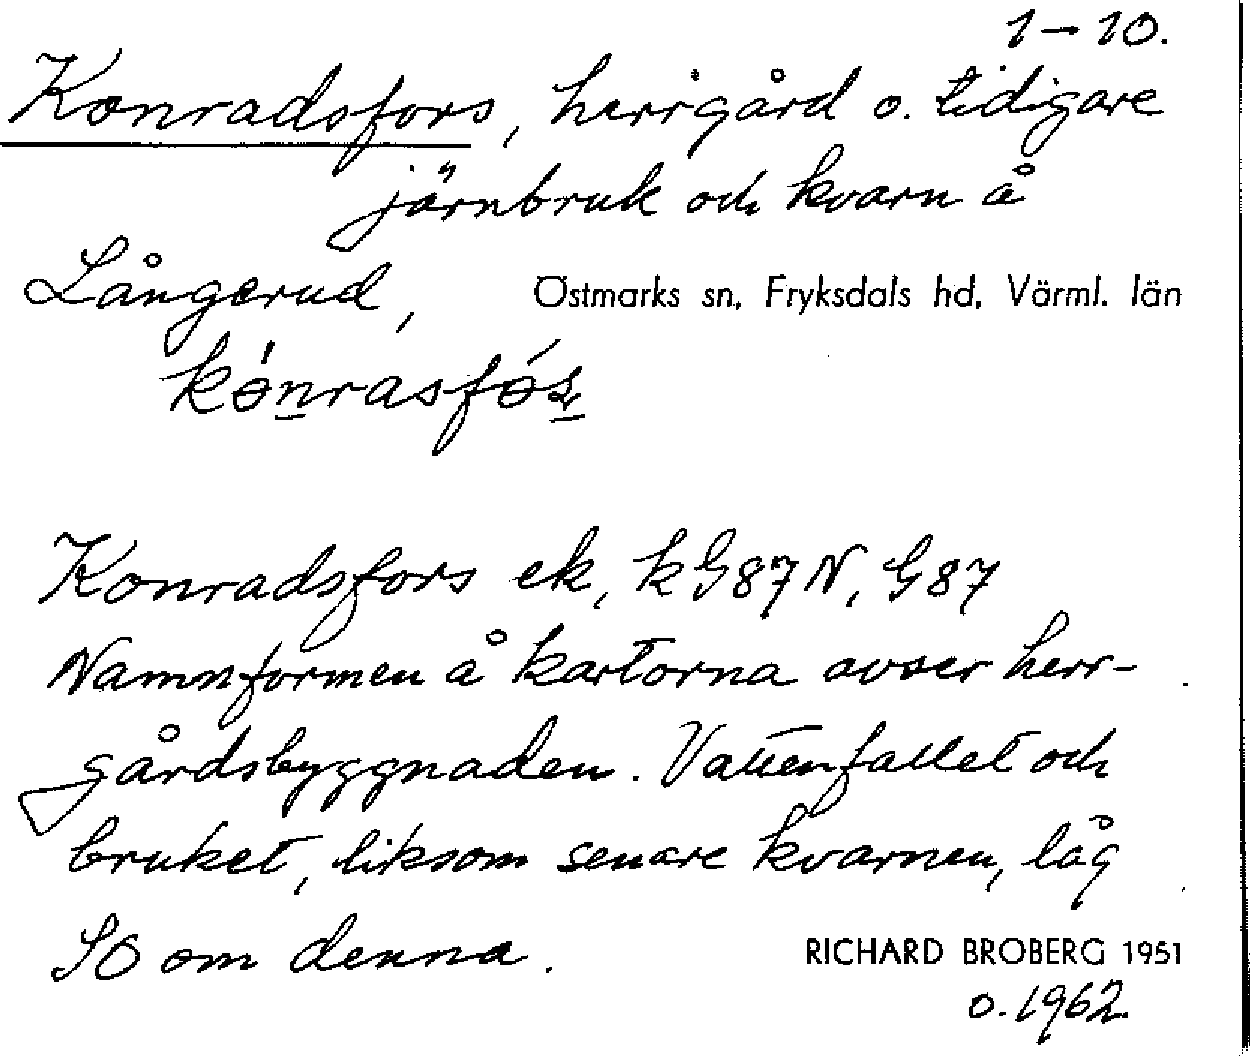 1–10.
Konradsfors, herrgård o. tidigare
järnbruk och kvarn å
Långerud, Östmarks sn, Fryksdals hd, Värml. län
Konradsfors ek, k G87 N, G87
Namnformen å kartorna avser herr-
gårdsbyggnaden. Vattenfallet och
bruket, liksom senare kvarnen, låg
SO om denna.
RICHARD BROBERG 1951
o. 1962